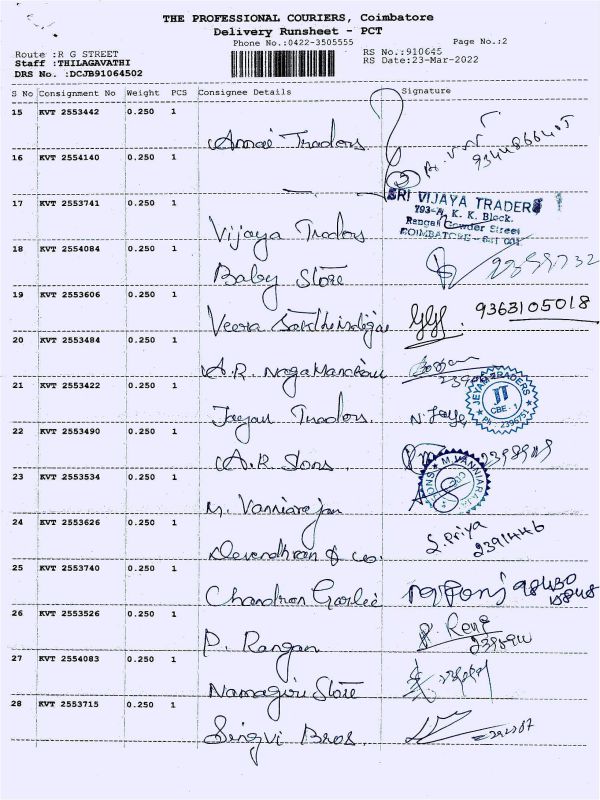 THE PROFESSIONAL COURIERS, Coimbatore
Delivery Runsheet - PCT
Phone No.:0422-3505555
Page No.:2
Route :R G STREET
RS No.:910645
Staff :THILAGAVATHI
RS Date:23-Mar-2022
DRS No. :DCJB91064502
S No Consignment No Weight PCS Consignee Details Signature
15 KVT 2553442 0.250 1
Annai Traders
9344866405
16 KVT 2554140 0.250 1
17 KVT 2553741 0.250 1
SRI VIJAYA TRADERS
793-A, K. K. Block.
Rangai Gowder Street
COIMBATORE - 641 001
Vijaya Traders
18 KVT 2554084 0.250 1
Baby Store
19 KVT 2553606 0.250 1
9363105018
Veera
20 KVT 2553484 0.250 1
A.R.
21 KVT 2553422 0.250 1
JEYAM TRADERS
JT
CBE - 1
Ph : 2396751
Jayam Traders.
22 KVT 2553490 0.250 1
A.R Sons.
23 KVT 2553534 0.250 1
M. VANNIARAJAN
SONS
M. Vanniarajan
24 KVT 2553626 0.250 1
S. Priya
2391446
Devendhran & co.
25 KVT 2553740 0.250 1
98430
Chandran Garlic
26 KVT 2553526 0.250 1
P. Rangan
27 KVT 2554083 0.250 1
Namagiri Store
28 KVT 2553715 0.250 1
Singvi Bros.